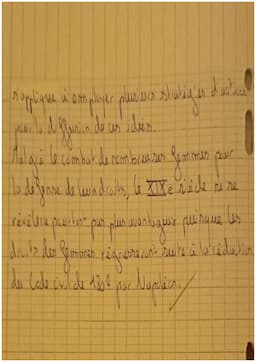 s'appliquer à employer plusieurs stratégies d'action
pour la diffusion de ces idées.
Malgré le combat de nombreuses femmes pour
la défense de leurs droits, le XIXe siècle ne se
révélera pourtant pas plus avantageux puisque les
droits des femmes régresseront suite à la rédaction
du Code civil de 1804 par Napoléon.